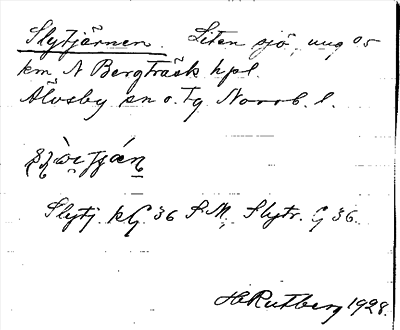 Slytjärnen. Liten sjö, ung 05
km N Bergträsk hpl.
Älvsby sn o. tg. Norrb. l.
Slytj. kG 36 S M; Slytr. G 36.
H Rutberg 1928.